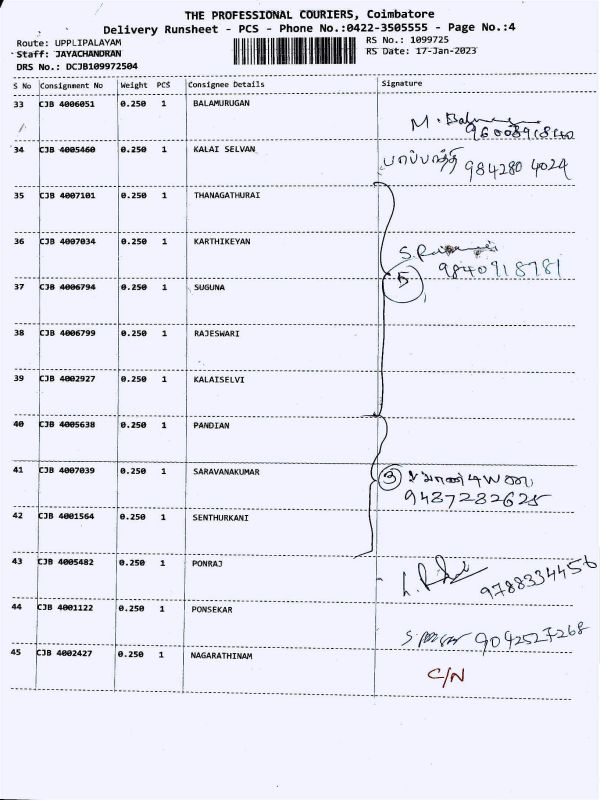 THE PROFESSIONAL COURIERS, Coimbatore
Delivery Runsheet - PCS - Phone No.:0422-3505555 - Page No.:4
Route: UPPLIPALAYAM
RS No.: 1099725
Staff: JAYACHANDRAN
RS Date: 17-Jan-2023
DRS No.: DCJB109972504
S No Consignment No Weight PCS Consignee Details Signature
33 CJB 4006051 0.250 1 BALAMURUGAN
M.
34 CJB 4005460 0.250 1 KALAI SELVAN
பாப்பாத்தி 984280 4024
35 CJB 4007101 0.250 1 THANAGATHURAI
36 CJB 4007034 0.250 1 KARTHIKEYAN
9840918781
37 CJB 4006794 0.250 1 SUGUNA 5
38 CJB 4006799 0.250 1 RAJESWARI
39 CJB 4002927 0.250 1 KALAISELVI
40 CJB 4005638 0.250 1 PANDIAN
41 CJB 4007039 0.250 1 SARAVANAKUMAR 3
9487282625
42 CJB 4001564 0.250 1 SENTHURKANI
43 CJB 4005482 0.250 1 PONRAJ
9788334456
44 CJB 4001122 0.250 1 PONSEKAR
9042527268
45 CJB 4002427 0.250 1 NAGARATHINAM
C/N